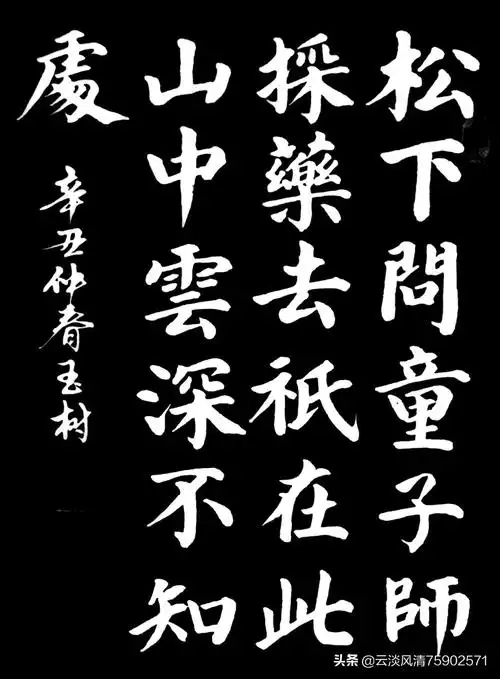 松下問童子師
採藥去祇在此
山中雲深不知
處
辛丑仲春玉树
头条 @云淡风清75902571